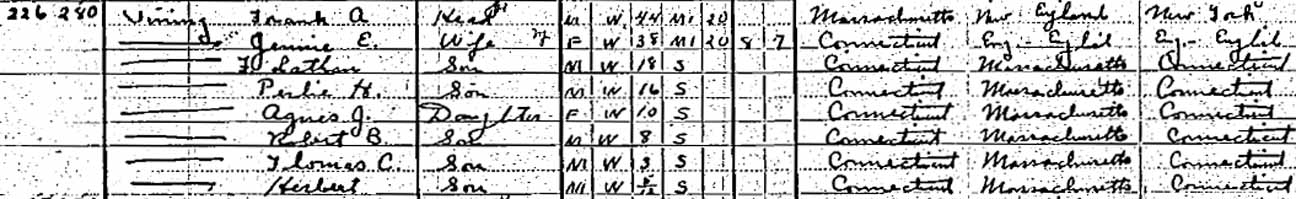 226 280 Vining Frank A. Head M W 44 M1 20 Massachusetts New England New York
Jennie E. Wife F W 38 M1 20 8 7 Connecticut Eng - Eglish Eng - Eglish
F Lathan Son M W 18 S Connecticut Massachusetts Connecticut
Perlie H. Son M W 16 S Connecticut Massachusetts Connecticut
Agnes J. Daughter F W 10 S Connecticut Massachusetts Connecticut
Robert B. Son M W 8 S Connecticut Massachusetts Connecticut
Thomas C. Son M W 3 S Connecticut Massachusetts Connecticut
Herbert Son M W S Connecticut Massachusetts Connecticut